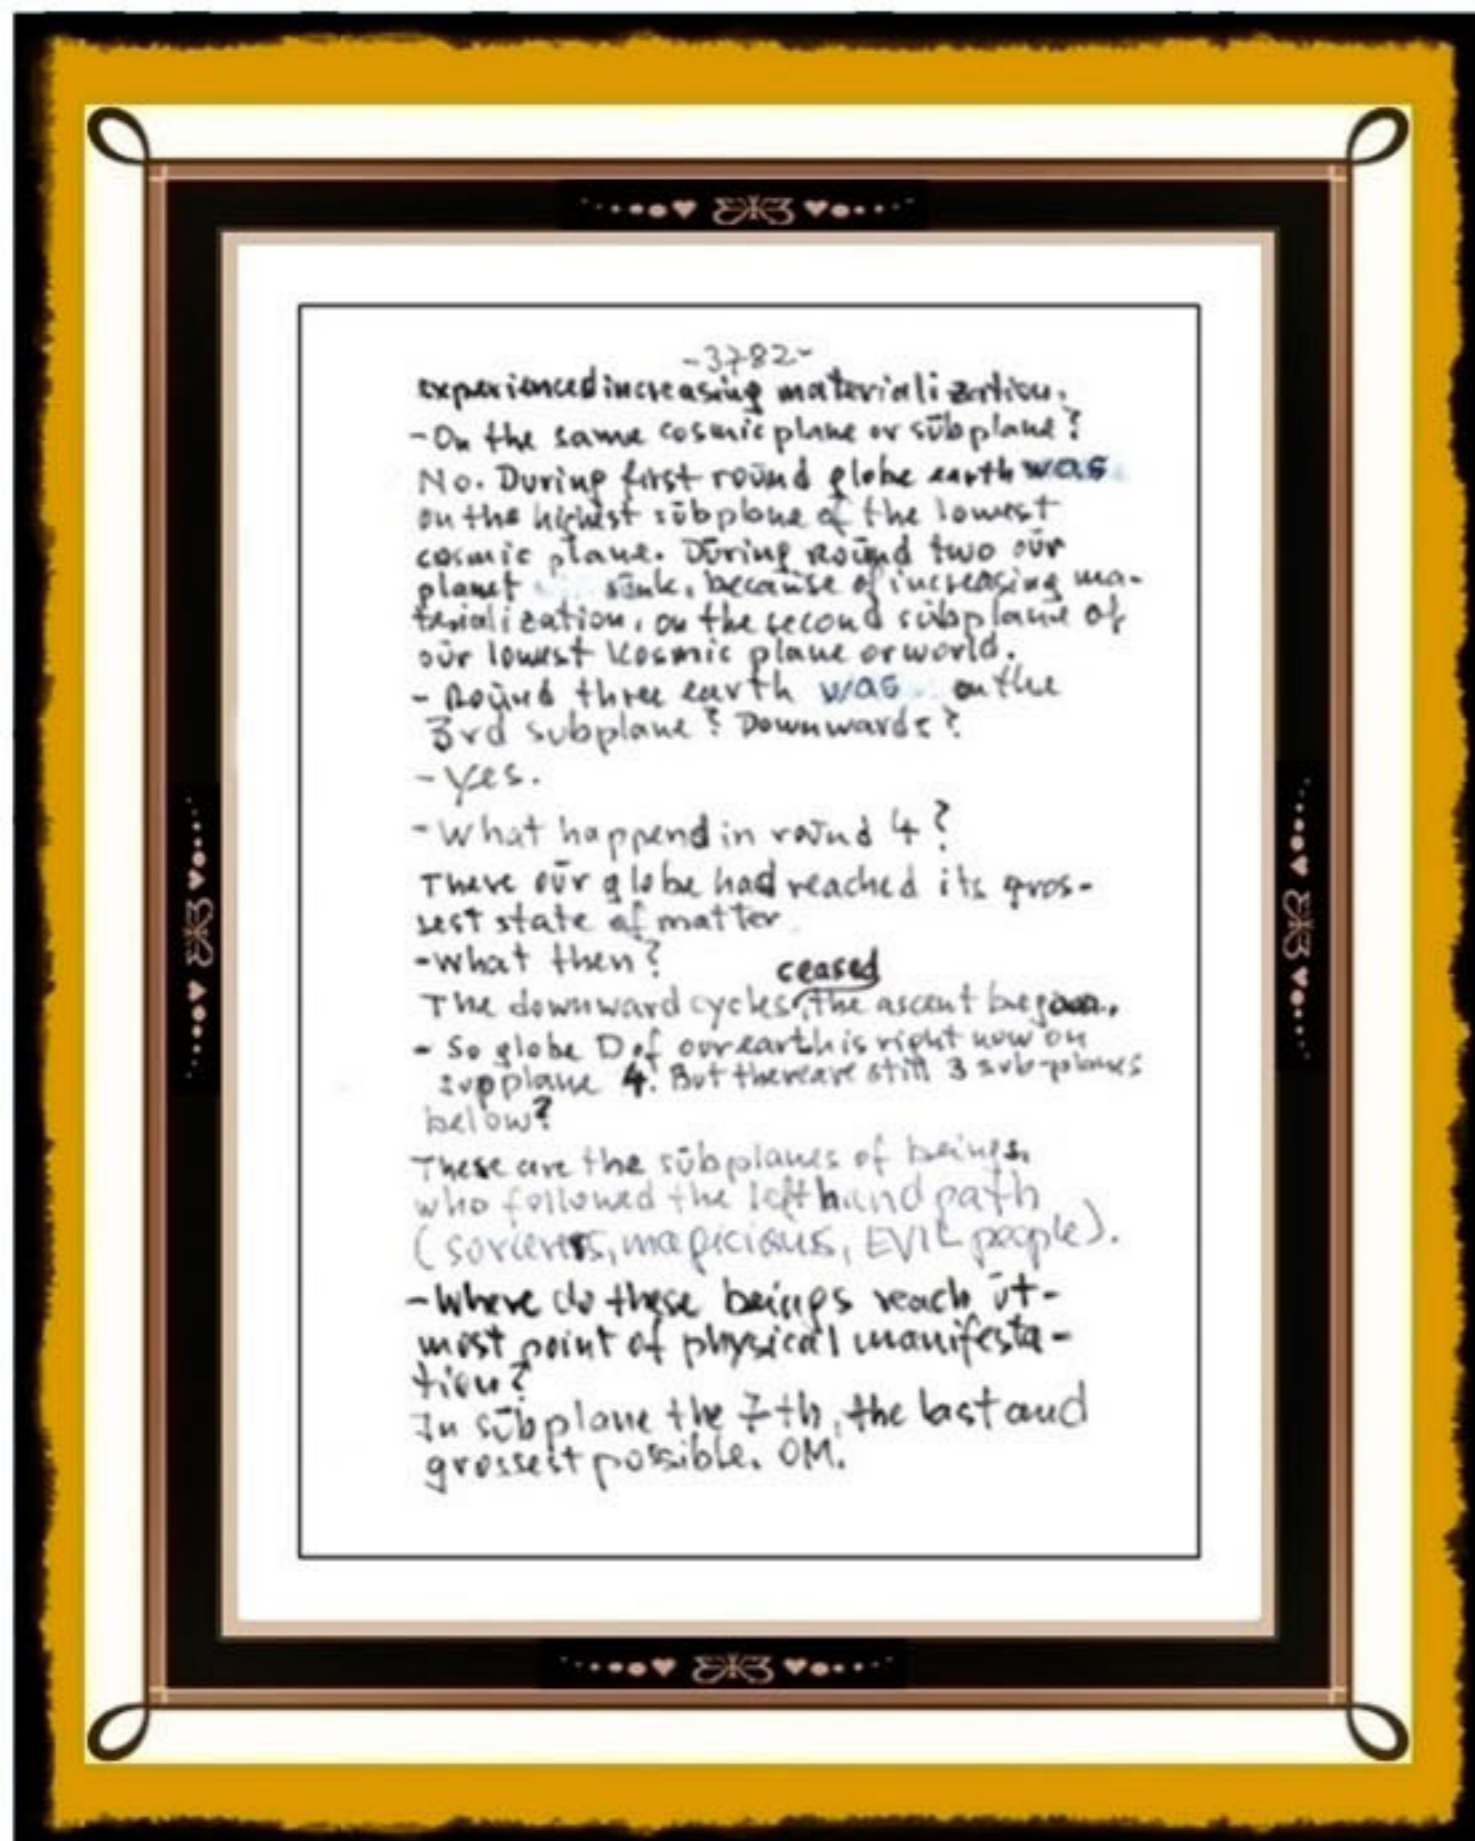 -3782-
experienced increasing materialization.
- On the same cosmic plane or sūbplane?
No. During first roūnd globe earth was
on the highest sūbplane of the lowest
cosmic plane. Dūring Roūnd two oūr
planet sūnk, becaūse of increasing ma-
terialization, on the second sūbplane of
oūr lowest Kosmic plane or world.
- Roūnd three earth was on the
3rd subplane? Downwards?
- Yes.
- What happend in roūnd 4?
There oūr globe had reached its gros-
sest state of matter
- What then?
ceased
The downward cycles, the ascent began.
- So globe D of our earth is right now on
supplane 4. But there are still 3 sub-planes
below?
These are the sūbplanes of beings,
who followed the left hand path
(sorcerers, magicians, EVIL people).
- Where do these beings reach ūt-
most point of physical manifesta-
tion?
In sūbplane the 7-th, the last and
grossest possible. OM.